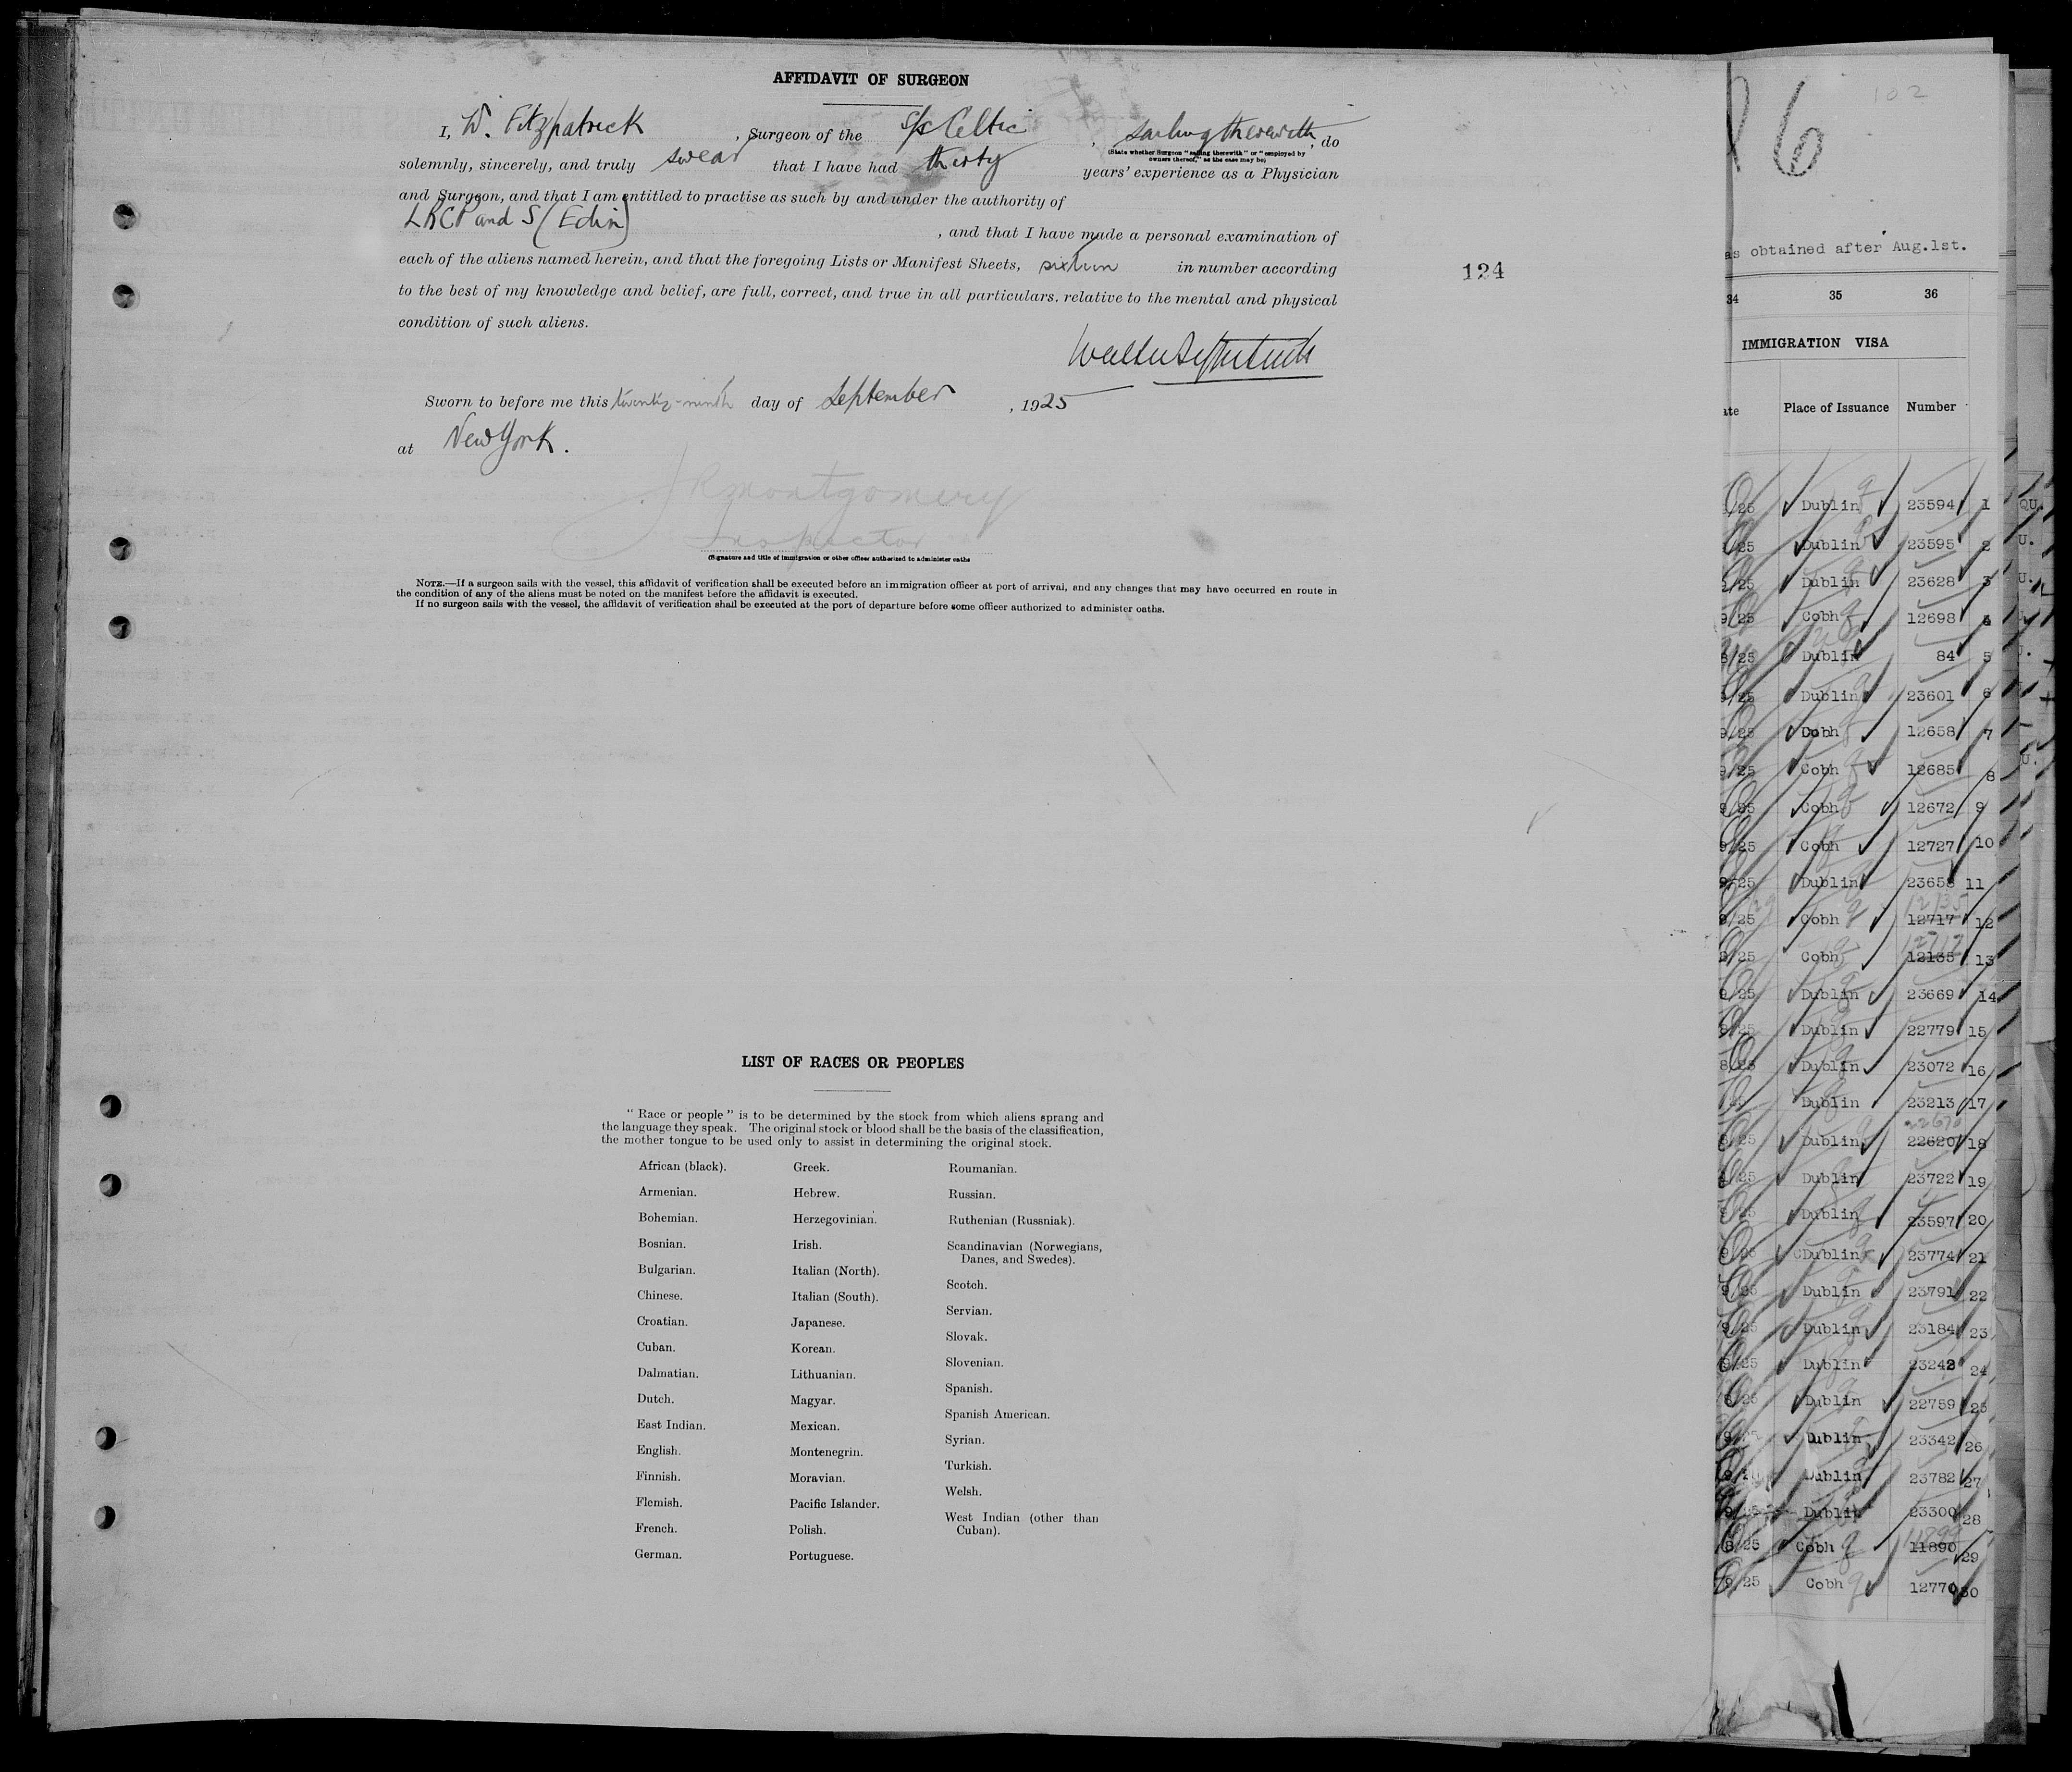 AFFIDAVIT OF SURGEON
I, W. Fitzpatrick, Surgeon of the S/S Celtic, sailing therewith, do
(State whether Surgeon "sailing therewith" or "employed by
owners thereof," as the case may be)
solemnly, sincerely, and truly swear that I have had thirty years' experience as a Physician
and Surgeon, and that I am entitled to practise as such by and under the authority of
LRCP and S (Edin)
, and that I have made a personal examination of
each of the aliens named herein, and that the foregoing Lists or Manifest Sheets, sixteen in number according
to the best of my knowledge and belief, are full, correct, and true in all particulars. relative to the mental and physical
condition of such aliens.
124
Sworn to before me this twenty-ninth day of September, 1925
at New York.
JR Montgomery
Inspector
(Signature and title of immigration or other officer authorized to administer oaths
NOTE.—If a surgeon sails with the vessel, this affidavit of verification shall be executed before an immigration officer at port of arrival, and any changes that may have occurred en route in
the condition of any of the aliens must be noted on the manifest before the affidavit is executed.
If no surgeon sails with the vessel, the affidavit of verification shall be executed at the port of departure before some officer authorized to administer oaths.
LIST OF RACES OR PEOPLES
"Race or people" is to be determined by the stock from which aliens sprang and
the language they speak. The original stock or blood shall be the basis of the classification,
the mother tongue to be used only to assist in determining the original stock.
African (black).
Armenian.
Bohemian.
Bosnian.
Bulgarian.
Chinese.
Croatian.
Cuban.
Dalmatian.
Dutch.
East Indian.
English.
Finnish.
Flemish.
French.
German.
Greek.
Hebrew.
Herzegovinian.
Irish.
Italian (North).
Italian (South).
Japanese.
Korean.
Lithuanian.
Magyar.
Mexican.
Montenegrin.
Moravian.
Pacific Islander.
Polish.
Portuguese.
Roumanian.
Russian.
Ruthenian (Russniak).
Scandinavian (Norwegians,
Danes, and Swedes).
Scotch.
Servian.
Slovak.
Slovenian.
Spanish.
Spanish American.
Syrian.
Turkish.
Welsh.
West Indian (other than
Cuban).
102
6
as obtained after Aug.1st.
34 35 36
IMMIGRATION VISA
ate Place of Issuance Number
/25 Dublin 23594 1
/25 Dublin 23595 2
/25 Dublin 23628 3
9/25 Cobh 12698 4
8/25 Dublin 84 5
9/25 Dublin 23601 6
9/25 Cobh 12658 7
9/25 Cobh 12685 8
9/25 Cobh 12672 9
9/25 Cobh 12727 10
9/25 Dublin 23658 11
12135
9/25 Cobh 12717 12
12717
8/25 Cobh 12135 13
9/25 Dublin 23669 14
8/25 Dublin 22779 15
8/25 Dublin 23072 16
Dublin 23213 17
22670
8/25 Dublin 22620 18
/25 Dublin 23722 19
/25 Dublin 23597 20
9/25 Dublin 23774 21
9/25 Dublin 23791 22
9/25 Dublin 23184 23
9/25 Dublin 23242 24
8/25 Dublin 22759 25
9/25 Dublin 23342 26
9/25 Dublin 23782 27
9/25 Dublin 23300 28
11899
8/25 Cobh 11890 29
9/25 Cobh 12770 30